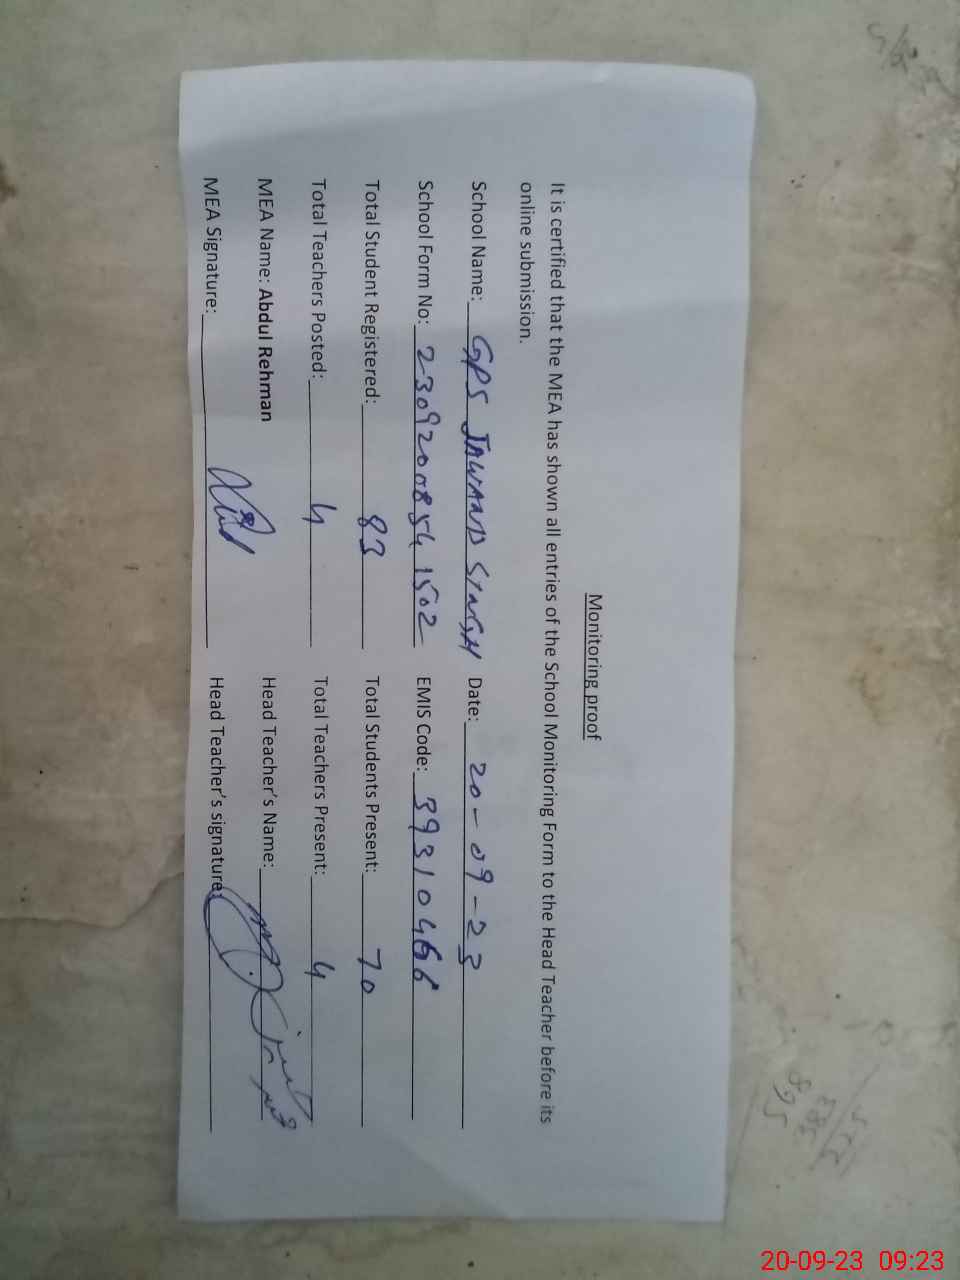 Monitoring proof
It is certified that the MEA has shown all entries of the School Monitoring Form to the Head Teacher before its
online submission.
School Name: GPS JAWAND SINGH Date: 20-09-23
School Form No: 2309200854 1502 EMIS Code: 39310466
Total Student Registered: 83 Total Students Present: 70
Total Teachers Posted: 4 Total Teachers Present: 4
MEA Name: Abdul Rehman Head Teacher's Name:
MEA Signature: Head Teacher's signature:
20-09-23 09:23